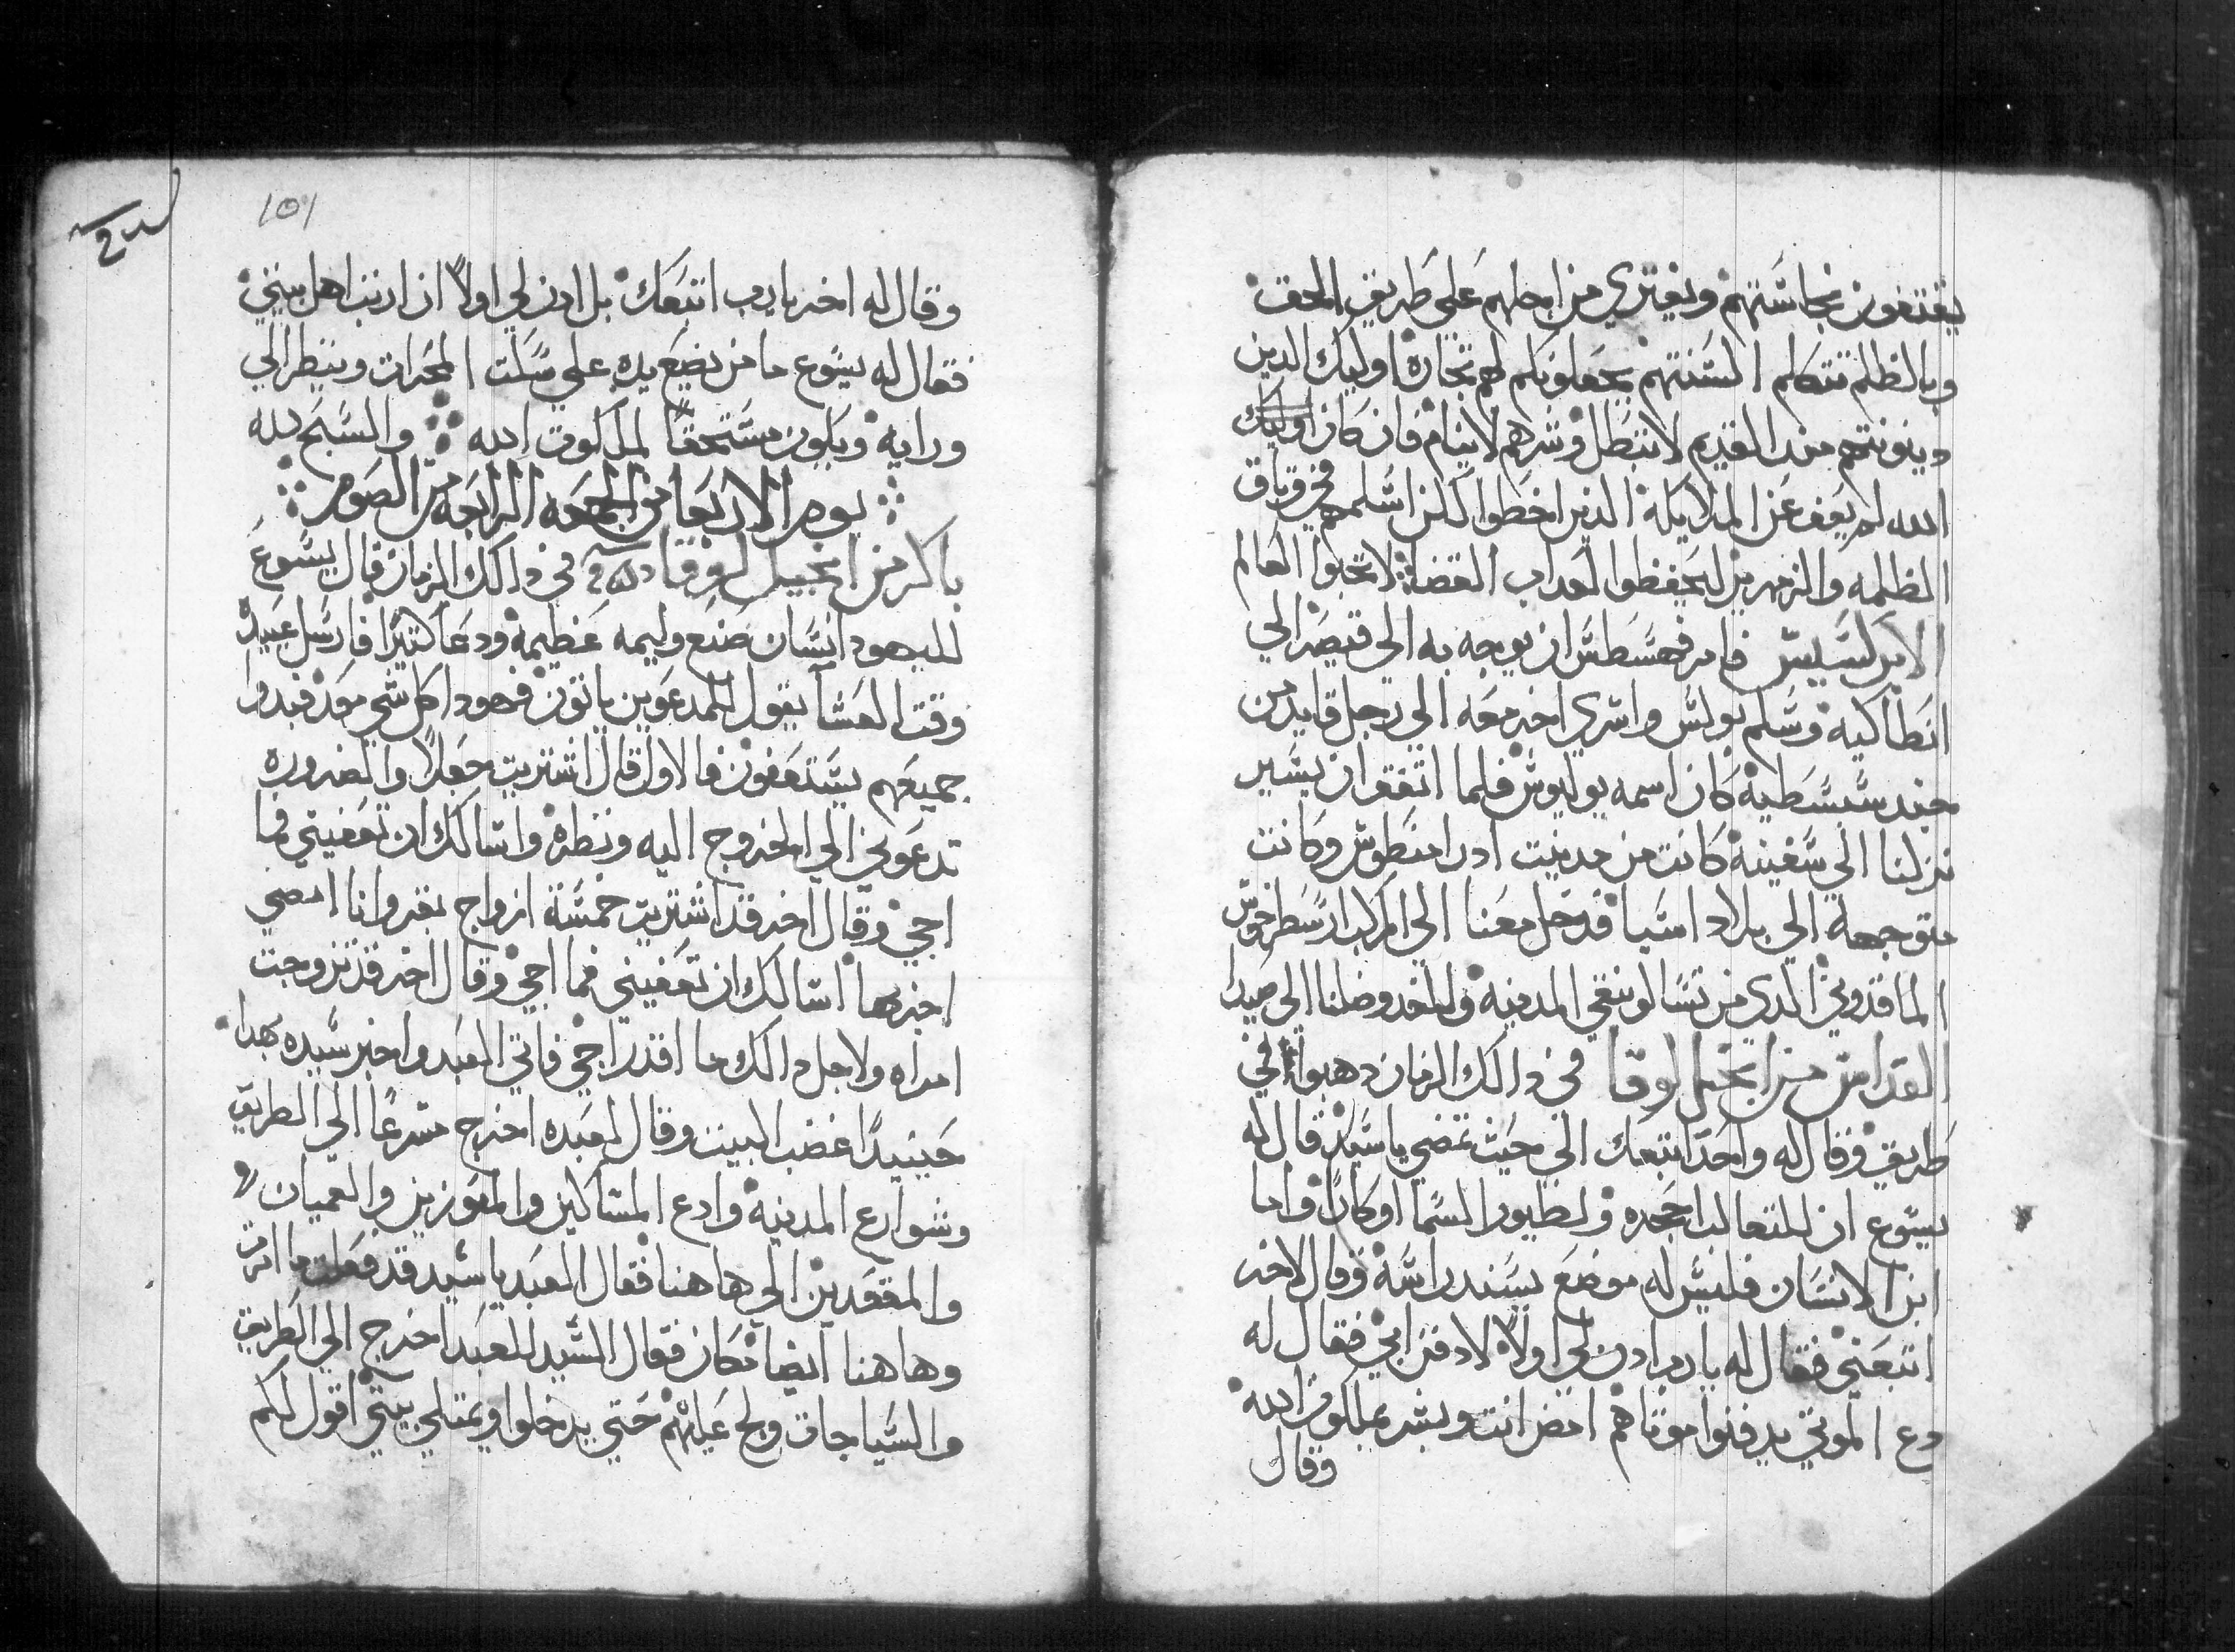 يقتفون نجاستهم ويفتري من اجلهم على طريق الحق
وبالظلم تتكلم السنتهم يجعلونكم لهم تجارة اوليك الدين
دينونتهم مند القديم لا تبطل وشرهم لا ينام فان كان
الله لم يعف عن الملايكة الدين اخطوا لكن اسلمهم في وثاق
الظلمه والزمهرير ليحفظوا لعداب القضاة لا تحبوا العالم
الابركسيس فامر فهسطس ان يوجه به الى قيصر الي
انطاكيه وسلم بولس واسري اخر معه الي رجل قايد من
جند سبسطيه كان اسمه يوليوس فلما اتفق ان يسير
نزلنا الي سفينة كانت من مدينت ادرامنطوس وكانت
متوجهة الي بلاد اسيا فدخل معنا الي المركب ارسطرخوس
الماقدوني الدي من تسالونيقي المدينه وللغد وصلنا الي صيدا
القداس من انجيل لوقا في دالك الزمان دهبوا في
طريق وقال له واحد اتبعك الي حيث تمضي يا سيد قال له
يسوع ان للتعالب اجحره ولطيور السما اوكارا واما
ابن الانسان فليس له موضع يسند راسه وقال لاخر
اتبعني فقال له يارب ادن لي اولا لادفن ابي فقال له
دع الموتي يدفنوا موتاهم امض انت وبشر بملكوت الله
وقال
101
وقال له اخر يارب اتبعك بل ادن لي اولا ان ارتب اهل بيتي
فقال له يسوع ما من يضع يده علي سكت المحرات وينظر الي
ورايه ويكون مستحقا لملكوت الله والسبح لله
يوم الاربعا من الجمعه الرابعه من الصوم
باكر من انجيل لوقا في دالك الزمان قال يسوع
لليهود انسان صنع وليمه عظيمة ودعا كتيرا فارسل عبيده
وقت العشا يقول للمدعوين ياتون فهودا كل شي معد فبدوا
جميعهم يستعفون فالاول قال اشتريت حقلا والضروره
تدعوني الي الخروج اليه ونظره واسالك ان تعفيني فما
اجي وقال اخر قد اشتريت خمسة ازواج بقر وانا امضي
اخبرها اسالك ان تعفيني فما اجي وقال اخر قد تزوجت
امراه ولاجل دالك ما اقدر اجي فاتي العبد واخبر سيده بهدا
حينيدا غضب البيت وقال لعبده اخرج مسرعا الي الطريق
وشوارع المدينه وادع المساكين والمعوزين والعميان
والمقعدين الي هاهنا فقال العبد يا سيد قد فعلت ما امرت
وهاهنا ايضا مكان فقال السيد للعبد اخرج الي الطريق
والسياجات ولج عليهم حتي يدخلوا ويمتلي بيتي اقول لكم